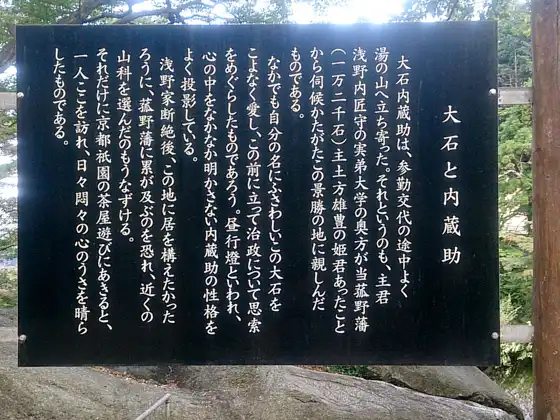 大石と内蔵助
大石内蔵助は、参勤交代の途中よく
湯の山へ立ち寄った。それというのも、主君
浅野内匠守の実弟大学の奥方が当菰野藩
(一万二千石)主土方雄豊の姫君あったこと
から伺候かたがたこの景勝の地に親しんだ
ものである。
なかでも自分の名にふさわしいこの大石を
こよなく愛し、この前に立って治政について思索
をめぐらしたものであろう。昼行燈といわれ、
心の中をなかなか明かさない内蔵助の性格を
よく投影している。
浅野家断絶後、この地に居を構えたかった
ろうに、菰野藩に累が及ぶのを恐れ、近くの
山科を選んだのもうなずける。
それだけに京都祇園の茶屋遊びにあきると、
一人ここを訪れ、日々悶々の心のうさを晴ら
したものである。